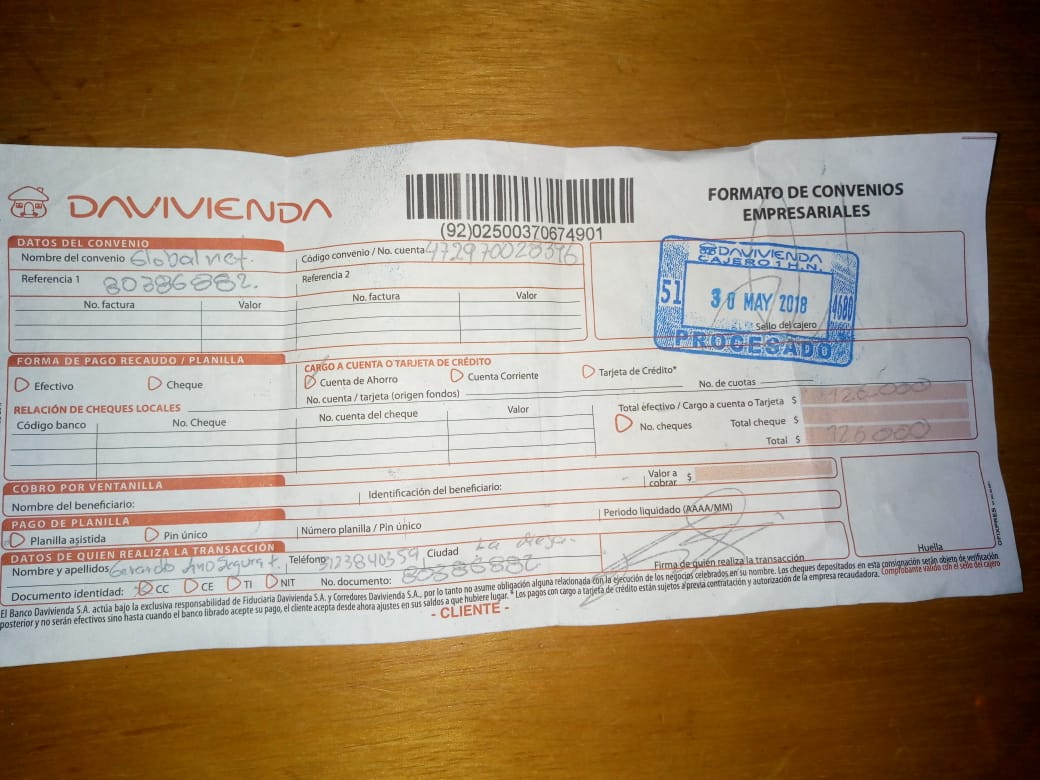 DAVIVIENDA
(92)02500370674901
FORMATO DE CONVENIOS
EMPRESARIALES
DATOS DEL CONVENIO
Nombre del convenio Globalnet.
Código convenio / No. cuenta 472970028396
Referencia 1 80386882.
Referencia 2
No. factura Valor No. factura Valor
DAVIVIENDA
CAJERO 1 H.N.
51 30 MAY 2018 4680
Sello del cajero
PROCESADO
FORMA DE PAGO RECAUDO / PLANILLA
Efectivo Cheque
CARGO A CUENTA O TARJETA DE CRÉDITO
Cuenta de Ahorro Cuenta Corriente Tarjeta de Crédito*
No. cuenta / tarjeta (origen fondos) No. de cuotas
RELACIÓN DE CHEQUES LOCALES
Código banco No. Cheque No. cuenta del cheque Valor
Total efectivo / Cargo a cuenta o Tarjeta $ 126.000
No. cheques Total cheque $
Total $ 126000
COBRO POR VENTANILLA
Nombre del beneficiario: Identificación del beneficiario: Valor a
cobrar $
PAGO DE PLANILLA
Planilla asistida Pin único Número planilla / Pin único Periodo liquidado (AAAA/MM)
DATOS DE QUIEN REALIZA LA TRANSACCIÓN
Nombre y apellidos Gerardo Teléfono 3123840359 Ciudad La
Documento identidad: CC CE TI NIT No. documento: 80386882
Firma de quien realiza la transacción
Huella
El Banco Davivienda S.A. actúa bajo la exclusiva responsabilidad de Fiduciaria Davivienda S.A. y Corredores Davivienda S.A., por lo tanto no asume obligación alguna relacionada con la ejecución de los negocios celebrados en su nombre. Los cheques depositados en esta consignación serán objeto de verificación
posterior y no serán efectivos sino hasta cuando el banco librado acepte su pago, el cliente acepta desde ahora ajustes en sus saldos a que hubiere lugar. * Los pagos con cargo a tarjeta de crédito están sujetos a previa contratación y autorización de la empresa recaudadora. Comprobante válido con el sello del cajero
- CLIENTE -